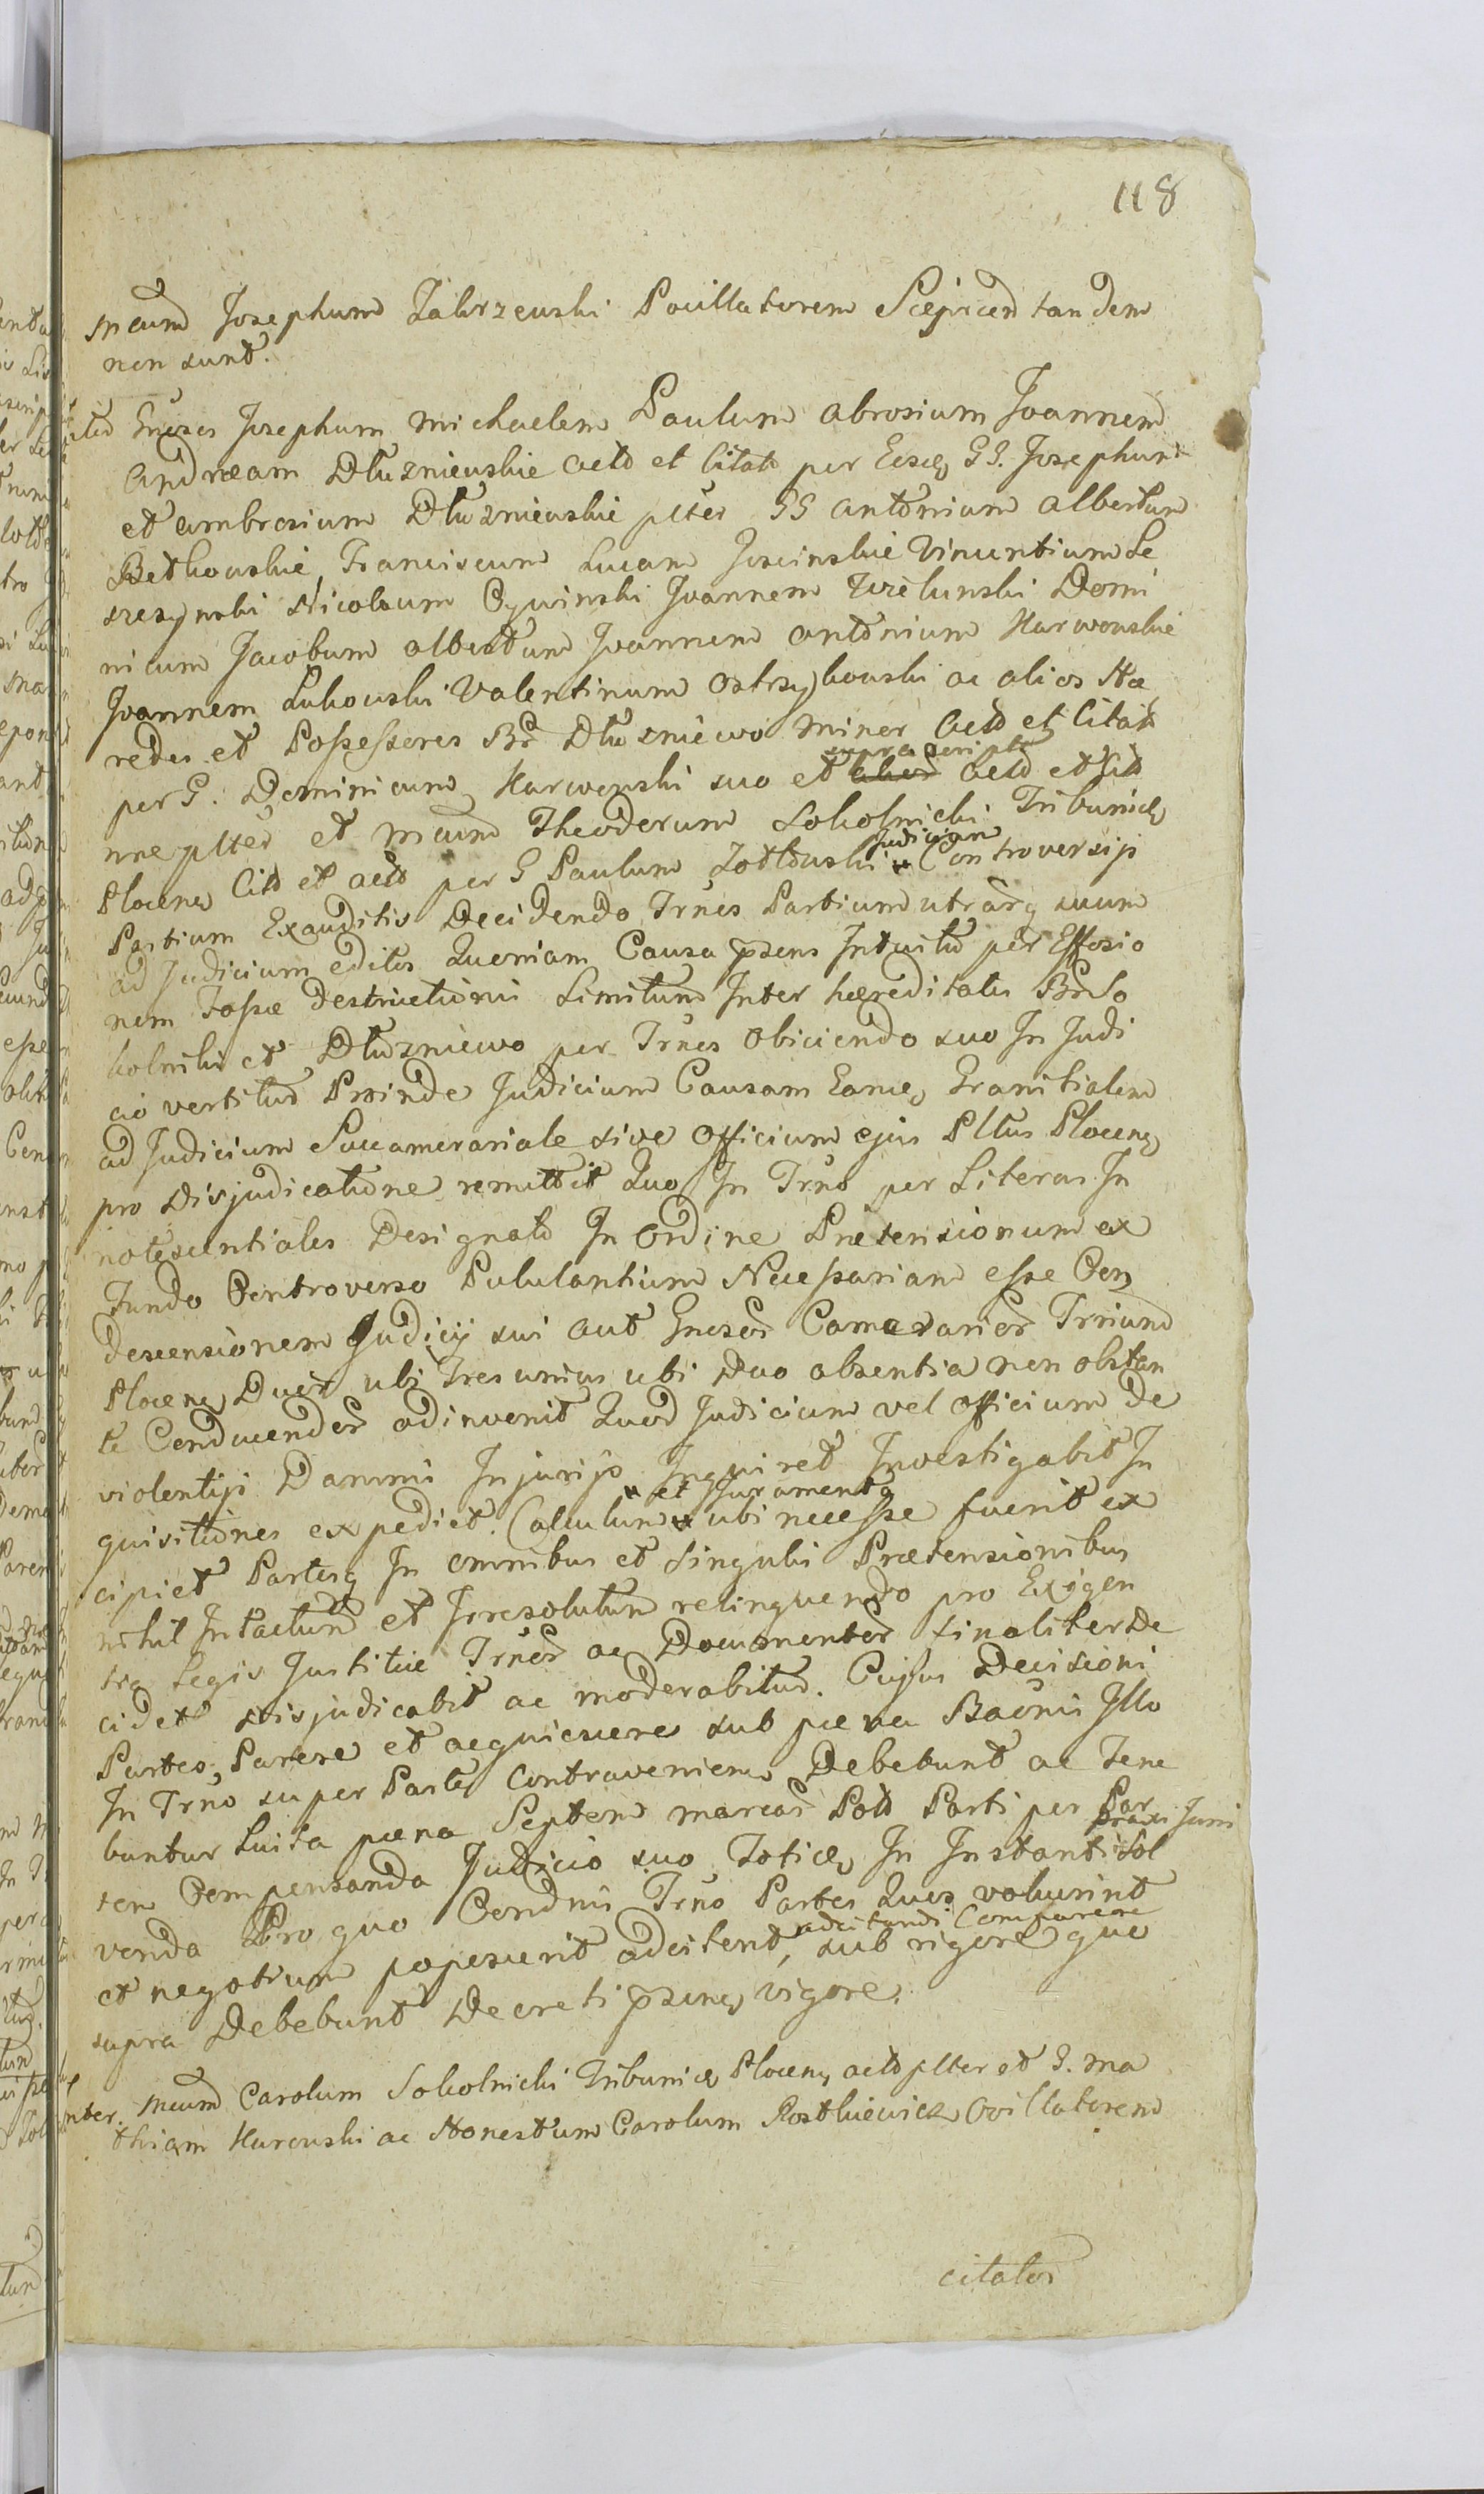 118
Mcum Josephum Zabrzewski Pocillatorem Scepicen tandem
non sunt.
Gnosos Josephum Michaelem Paulum Abrosium Joannem
Andream Dłuzniewskie Actor et Citato per Eosd GG. Josephum
et Ambrosium Dłuzniewskie plter GG Antonium Albertum
Betkowskie Franciscum Lucam Joscinskie Vincentium Le
szczynski Nicolaum Cywinski Joannem Domi
nicum Jacobum Albertum Joannem Antonium Karwowskie
Joannem Lukowski Valentinum Ostrzykowski ac alios Hæ
redes et Possessores Br Dłuzniewo Minor Acto et Citato
supra scripto
per G. Dominicum Karwowski suo et Acto et Cit
nne plter et Mcum Theodorum Sokolnicki Tribunid
Judicium
Plocens Cito et Acto per G Paulum Zottowski Controversijs
Partium Exauditis Decidendo Trnos Partium utrarq suum
ad Judicium editos Quoniam Causa prsens Intuitu per Effosio
nem Fossæ Destructionis Limitum Inter hæreditates Br So
kolniki et Dłuzniewo per Trnos Obiciendo suo In Judi
cio vertitur Proinde Judicium Causam Eand Granitialem
ad Judicium Succamerariale sive Officium ejus Pltus Plocens
pro Disjudicatione remittit Quo In Trno per Literas In
notescentiales Designato In Ordine Prætensionum ex
Fundo Controverso Pululantium Necessariam esse Con
descensionem Judicij sui aut Gnosor Camerarior Trrium
Plocens Duor ubi Tres unius ubi Duo absentia non obstan
te Conducendor adinvenit Quod Judicium vel Officium de
violentijs Damnis Injurijs Inquiret Investigabit In
et Juramenta
quisitiones expediet. Calculum ubi necesse fuerit ex
cipiet Partesq In omnibus et Singulis Prætensionibus
nihil Intactum et Irresolutum relinquendo pro Exigen
tia Legis Justitiæ Trnor ac Documentor finaliter De
cidet Disjudicabit ac moderabitur. Cujus Decisioni
Partes, Parere et acquiescere sub pæna Baonis Illo
In Trno super Parte Contraveniens Debebunt ac Tene
buntur Luita pæna Septem marcar Pold Parti per Par
prævi Jurii
tem Compensanda Judicio suo Totid In Instanti Sol
venda Pro quo Condnis Trno Partes Quos voluerint
adcitandi Comparere
et negotium poposcerit adcitent, sub rigore quo
supra Debebunt Decreti prsens vigore.
Inter. Mcum Carolum Sokolnicki Tribunid Plocens acto plter et G. Ma
thiam Karwski ac Honestum Carolum Rostkiewicz Ovillatorem
citatos